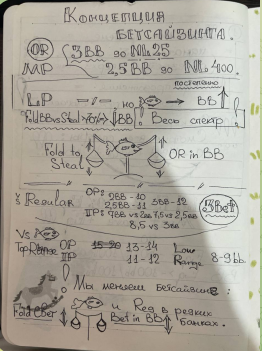 Концепция
бетсайзинга.
OR 3BB до NL25
MP 2,5BB до NL400.
постепенно
LP -//- но → BB↑
Fold BBvsSteal >70% ↓BB Весь спектр
Fold to Steal OR in BB
vs Regular OOP:
9BB - 10
2,5BB - 11 3BB - 12
IP: 7BB vs 2BB 7,5 vs 2,5BB
8,5 vs 3BB
3bet
Vs
Top Range OP 15-20 13-14 Low
IP 11-12 Range 8-9bb
Мы меняем бетсайзинг:
и Reg в редких
Bet in BB банках.